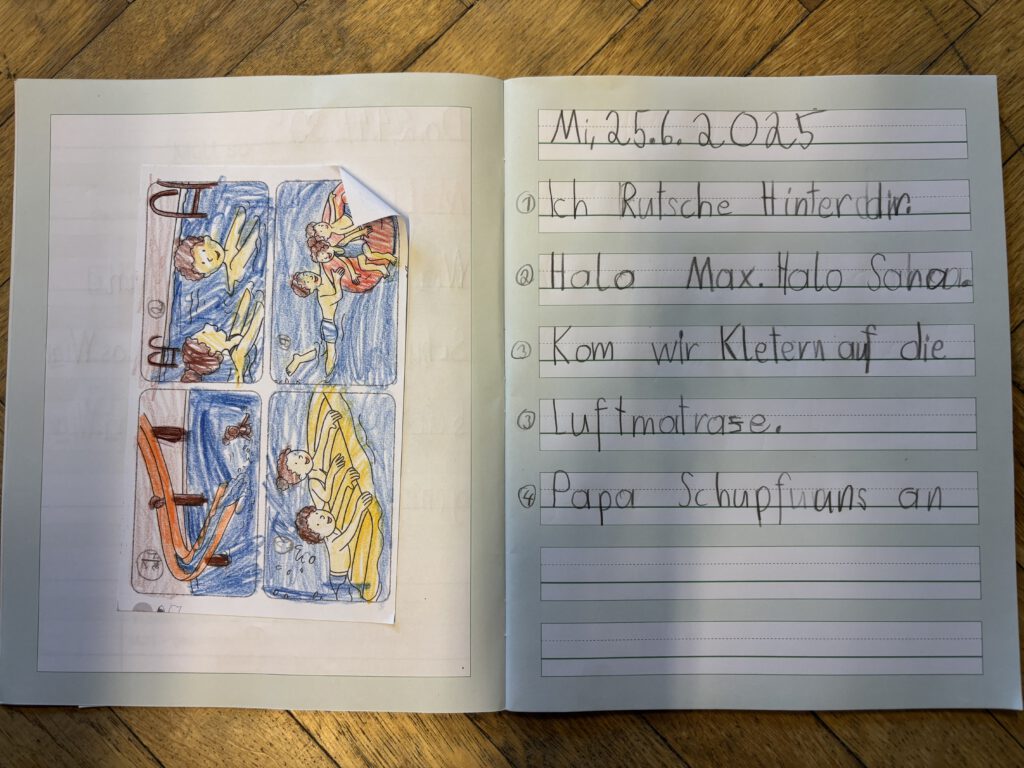 Mi, 25.6. 2025
① Ich Rutsche Hinter dir.
② Halo Max. Halo Sana.
③ Kom wir Kletern auf die
③ Luftmatrase.
④ Papa Schupf uns an